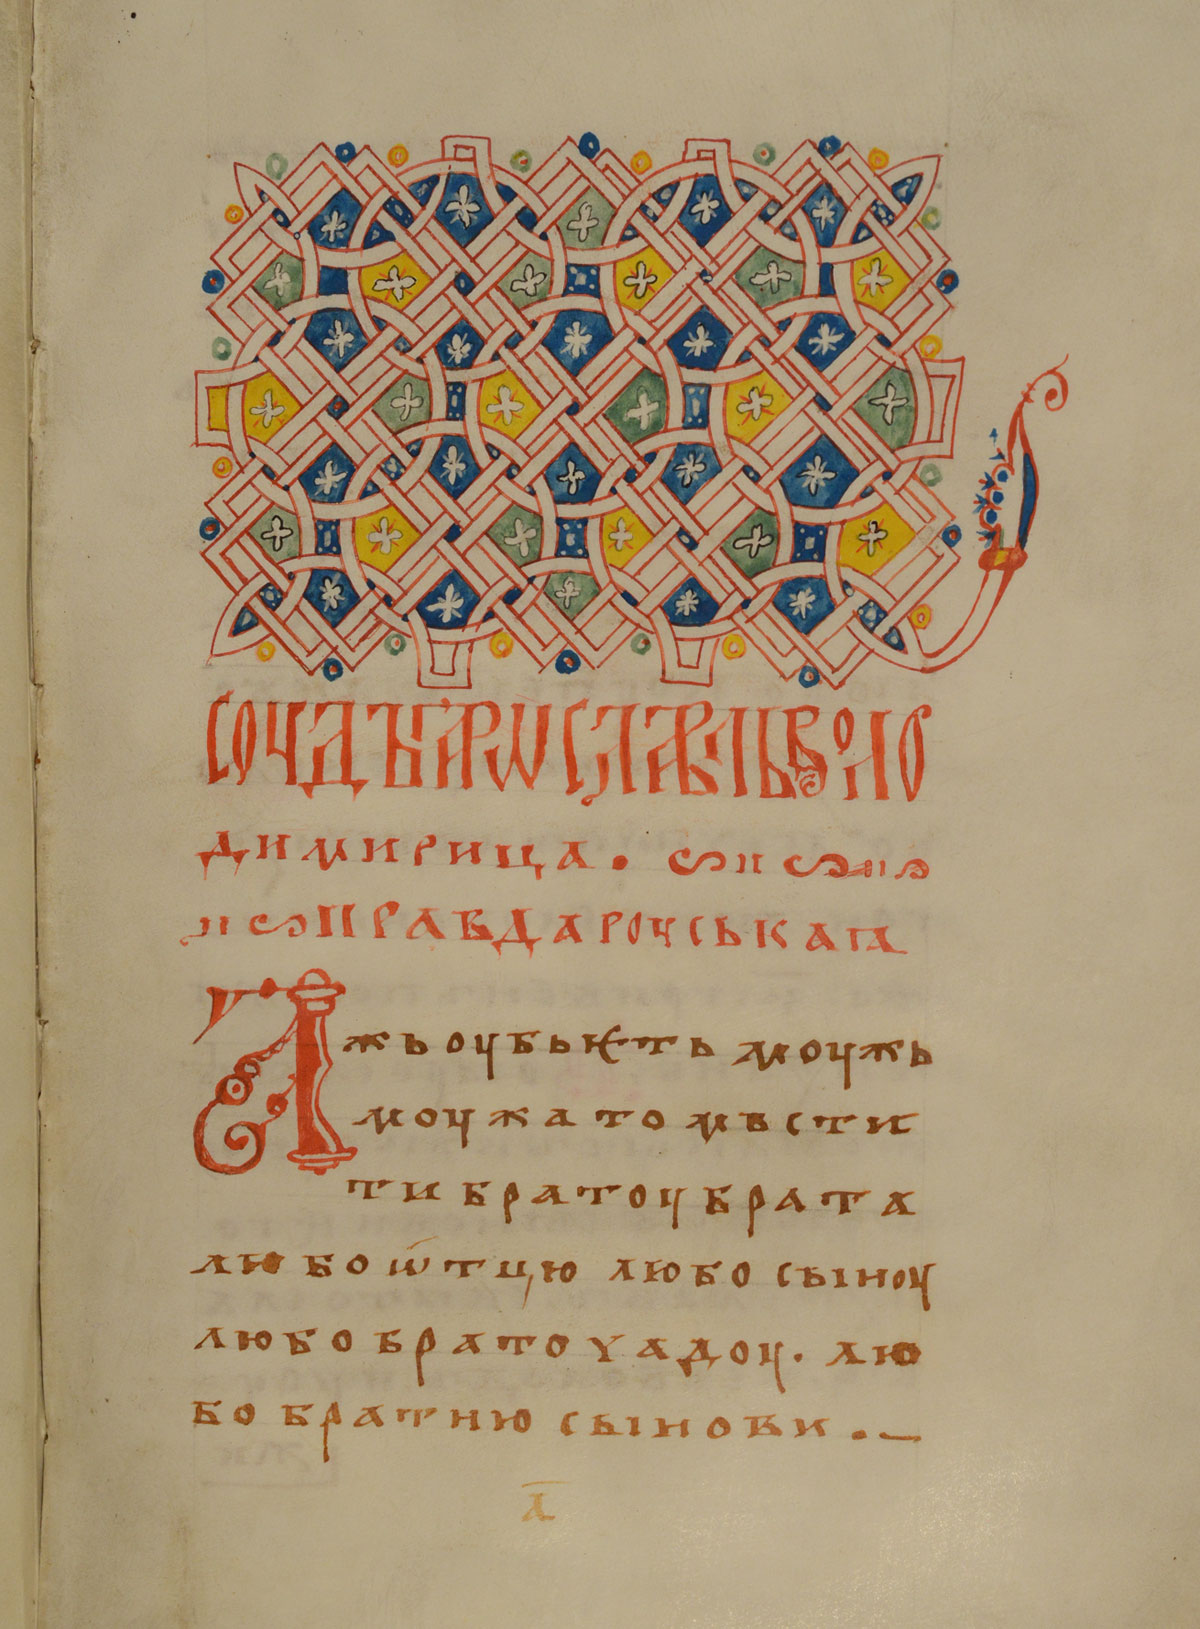 СОУДЪꙖРОСЛАВЛЬВОЛО
ДИМИРИЦА.
ПРАВДАРОУСЬКАꙖ
Ажьоубьѥть моужь
моужатомьсти
тибратоубрата
любоѿтцю любосыноу
любобратоучадоу. лю
бобратнюсынови.
а҃